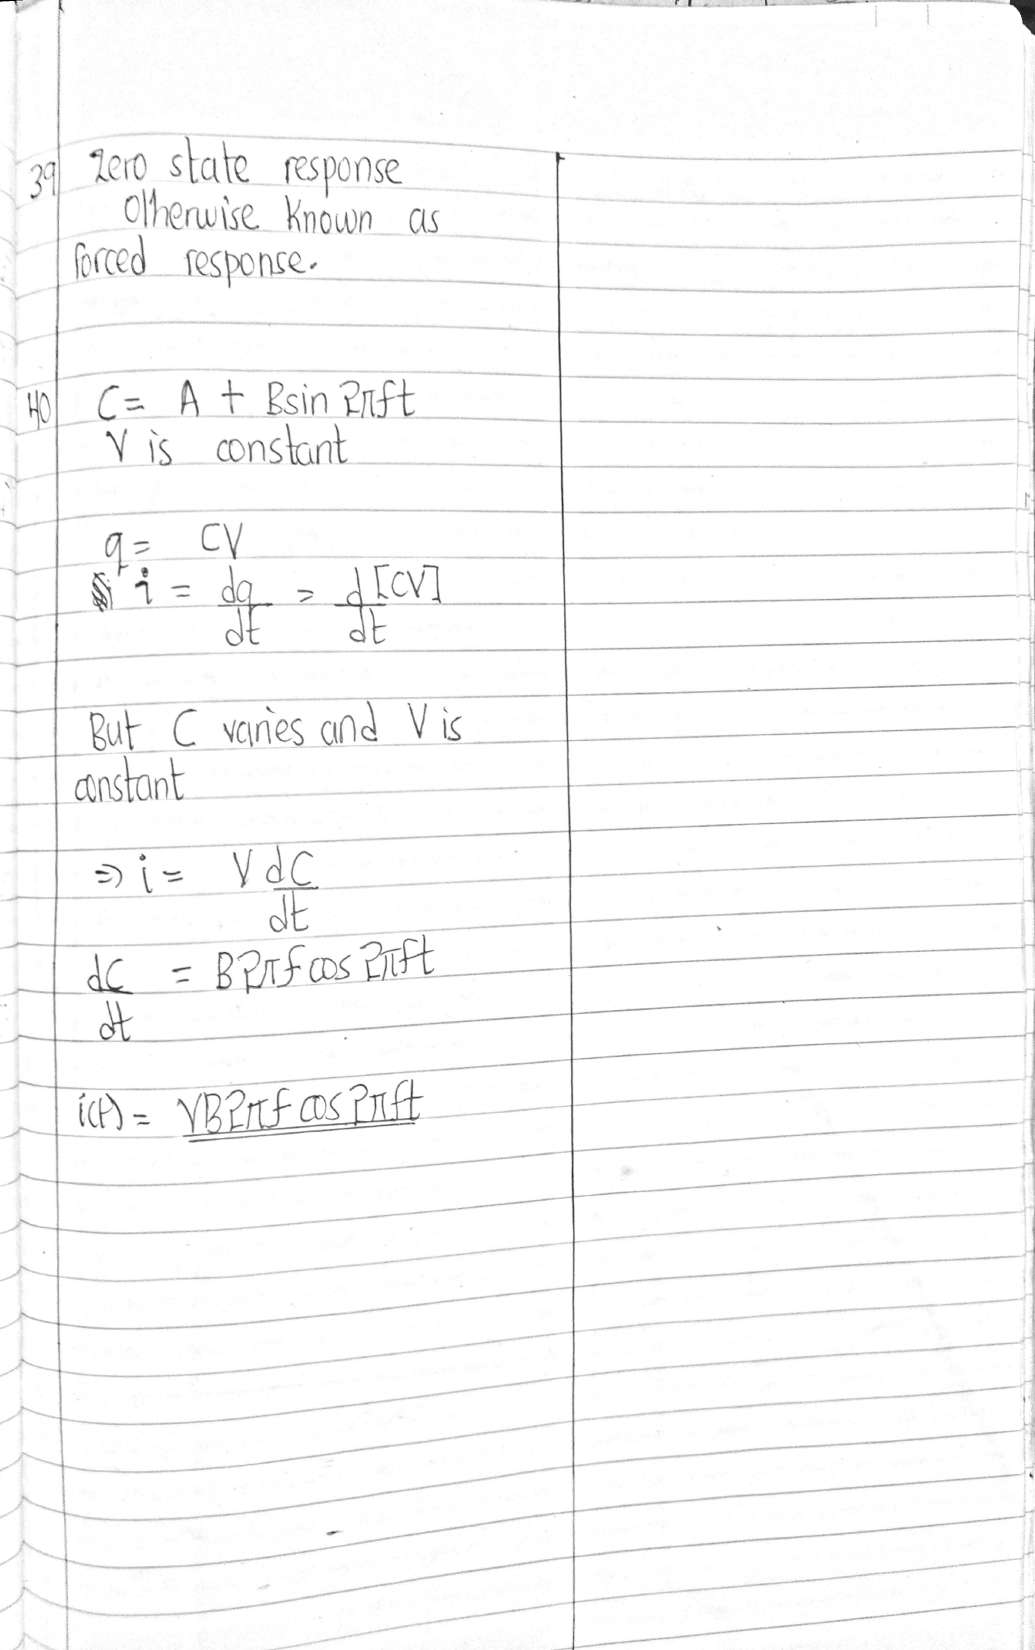 39 Zero state response
Otherwise known as
forced response.
40 C = A + Bsin 2πft
V is constant
q = CV
i = dq/dt = d[CV]/dt
But C varies and V is
constant
⇒ i = V dC/dt
dC/dt = B2πf cos 2πft
i(t) = VB2πf cos 2πft